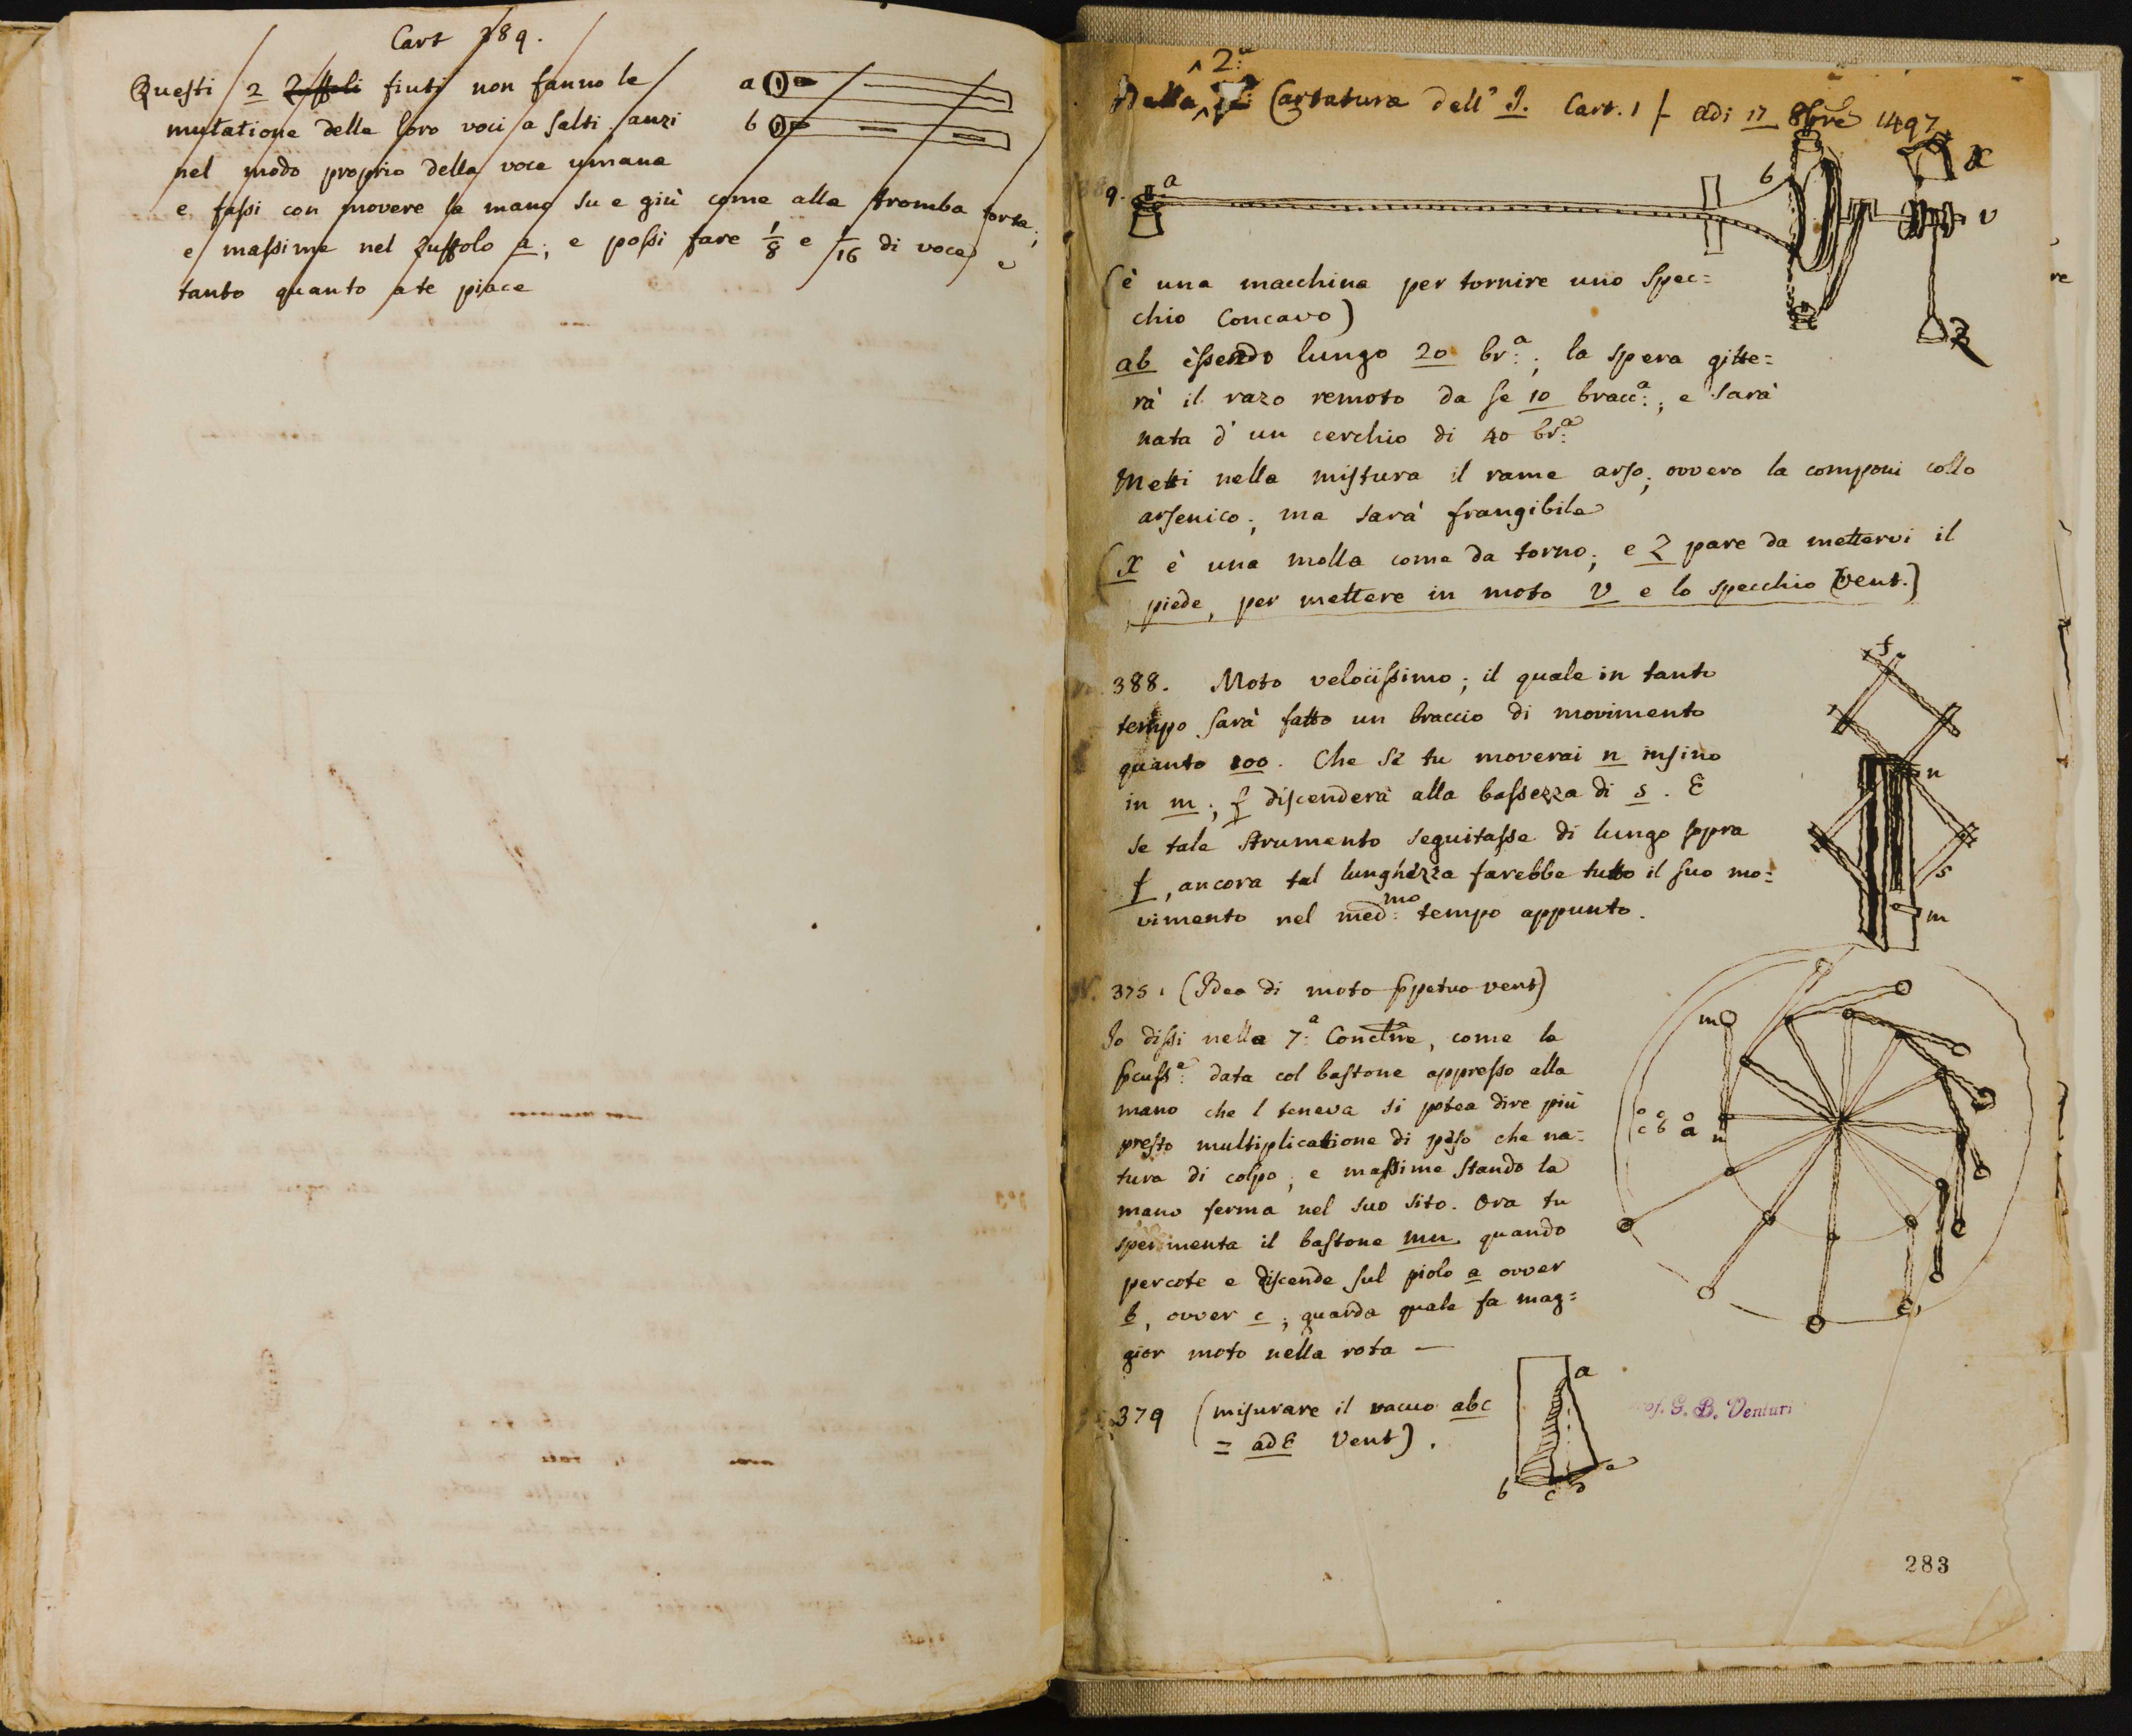 Cart 389.
Questi 2 Zuffoli fiuti non fanno le
mutatione delle loro voci a salti anzi
nel modo proprio della voce umana
e fassi con movere la mano su e giù come alla tromba torta;
e massime nel zuffolo a; e possi fare 1/8 e 1/16 di voce e
tanto quanto a te piace
a
b
2a
Dalla Cartatura dell' I. Cart. 1 adi 17 8bre 1497
9.
a
b
X
v
Z
(è una macchina per tornire uno spec=
chio concavo)
ab essendo lungo 20 br:a; la spera gitte=
rà il razo remoto da se 10 bracc:a; e sarà
nata d' un cerchio di 40 br:a
Metti nella mistura il rame arso; ovvero la componi collo
arsenico; ma sarà frangibile
(X è una molla come da torno; e Z pare da mettervi il
piede, per mettere in moto v e lo specchio Vent.)
388. Moto velocissimo; il quale in tanto
tempo sarà fatto un braccio di movimento
quanto 100. Che se tu moverai n insino
in m; f discenderà alla bassezza di s. E
se tale strumento seguitasse di lungo sopra
f, ancora tal lunghezza farebbe tutto il suo mo=
vimento nel med:mo tempo appunto.
f
n
s
m
N. 375. (Idea di moto ppetuo vent)
Io dissi nella 7:a Conclne, come la
pcuss:e data col bastone appresso alla
mano che l teneva si potea dire più
presto multiplicatione di peso che na=
tura di colpo; e massime stando la
mano ferma nel suo sito. Ora tu
sperimenta il bastone mn quando
percote e discende sul piolo a ovver
b, ovver c; guarda quale fa mag=
gior moto nella rota —
m
c b a n
379 (misurare il vacuo abc
= adE Vent).
a
b c d e
Prof. G. B. Venturi
283